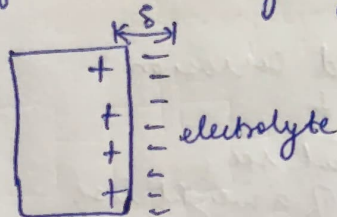 δ
+
+
+
+
electrolyte